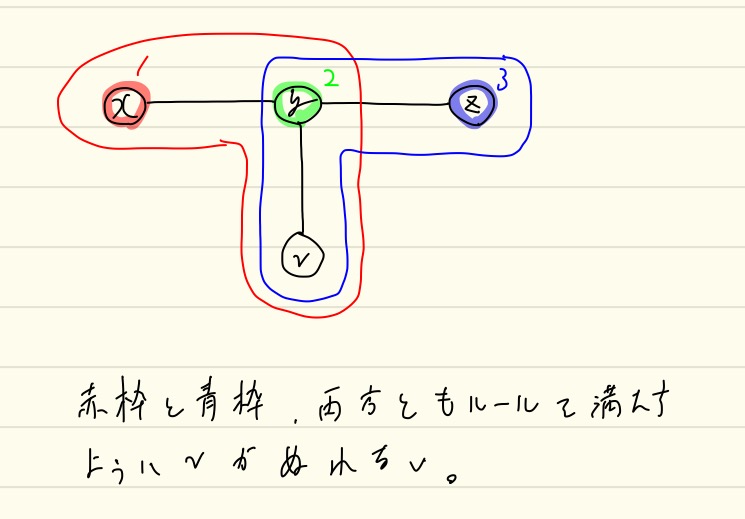 1
x
y 2
z 3
v
赤枠と青枠、両方ともルールを満たす
ように v がぬれない。